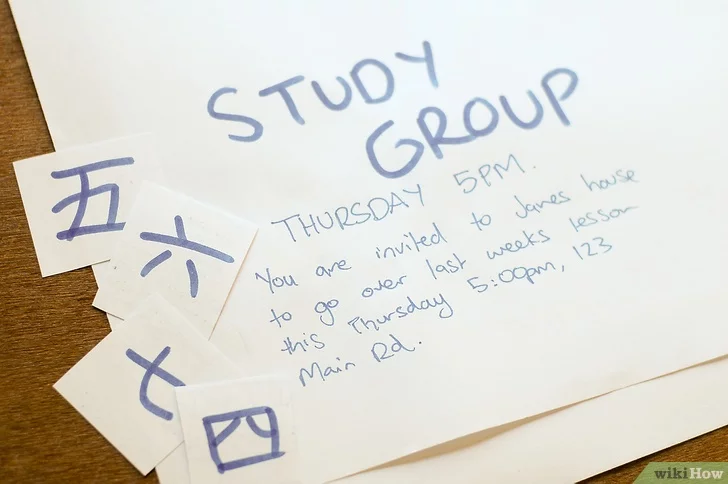 STUDY
GROUP
THURSDAY 5PM.
You are invited to Janes house
to go over last weeks lesson
this Thursday 5:00pm, 123
Main Rd.
五
六
七
四
wikiHow